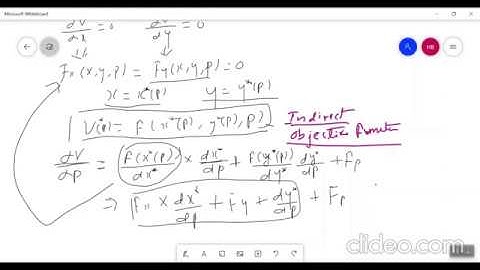 Microsoft Whiteboard
dV/dx = 0 dV/dy = 0
Fx(x,y,p) = Fy(x,y,p) = 0
x = x*(p) y = y*(p)
V(p) = F(x*(p), y*(p), p) Indirect
objective function
dV/dp = F(x*(p))/dx* × dx*/dp + F(y*(p))/dy* dy*/dp + Fp
⇒ Fx × dx*/dp + Fy + dy*/dp + Fp
HB
clideo.com